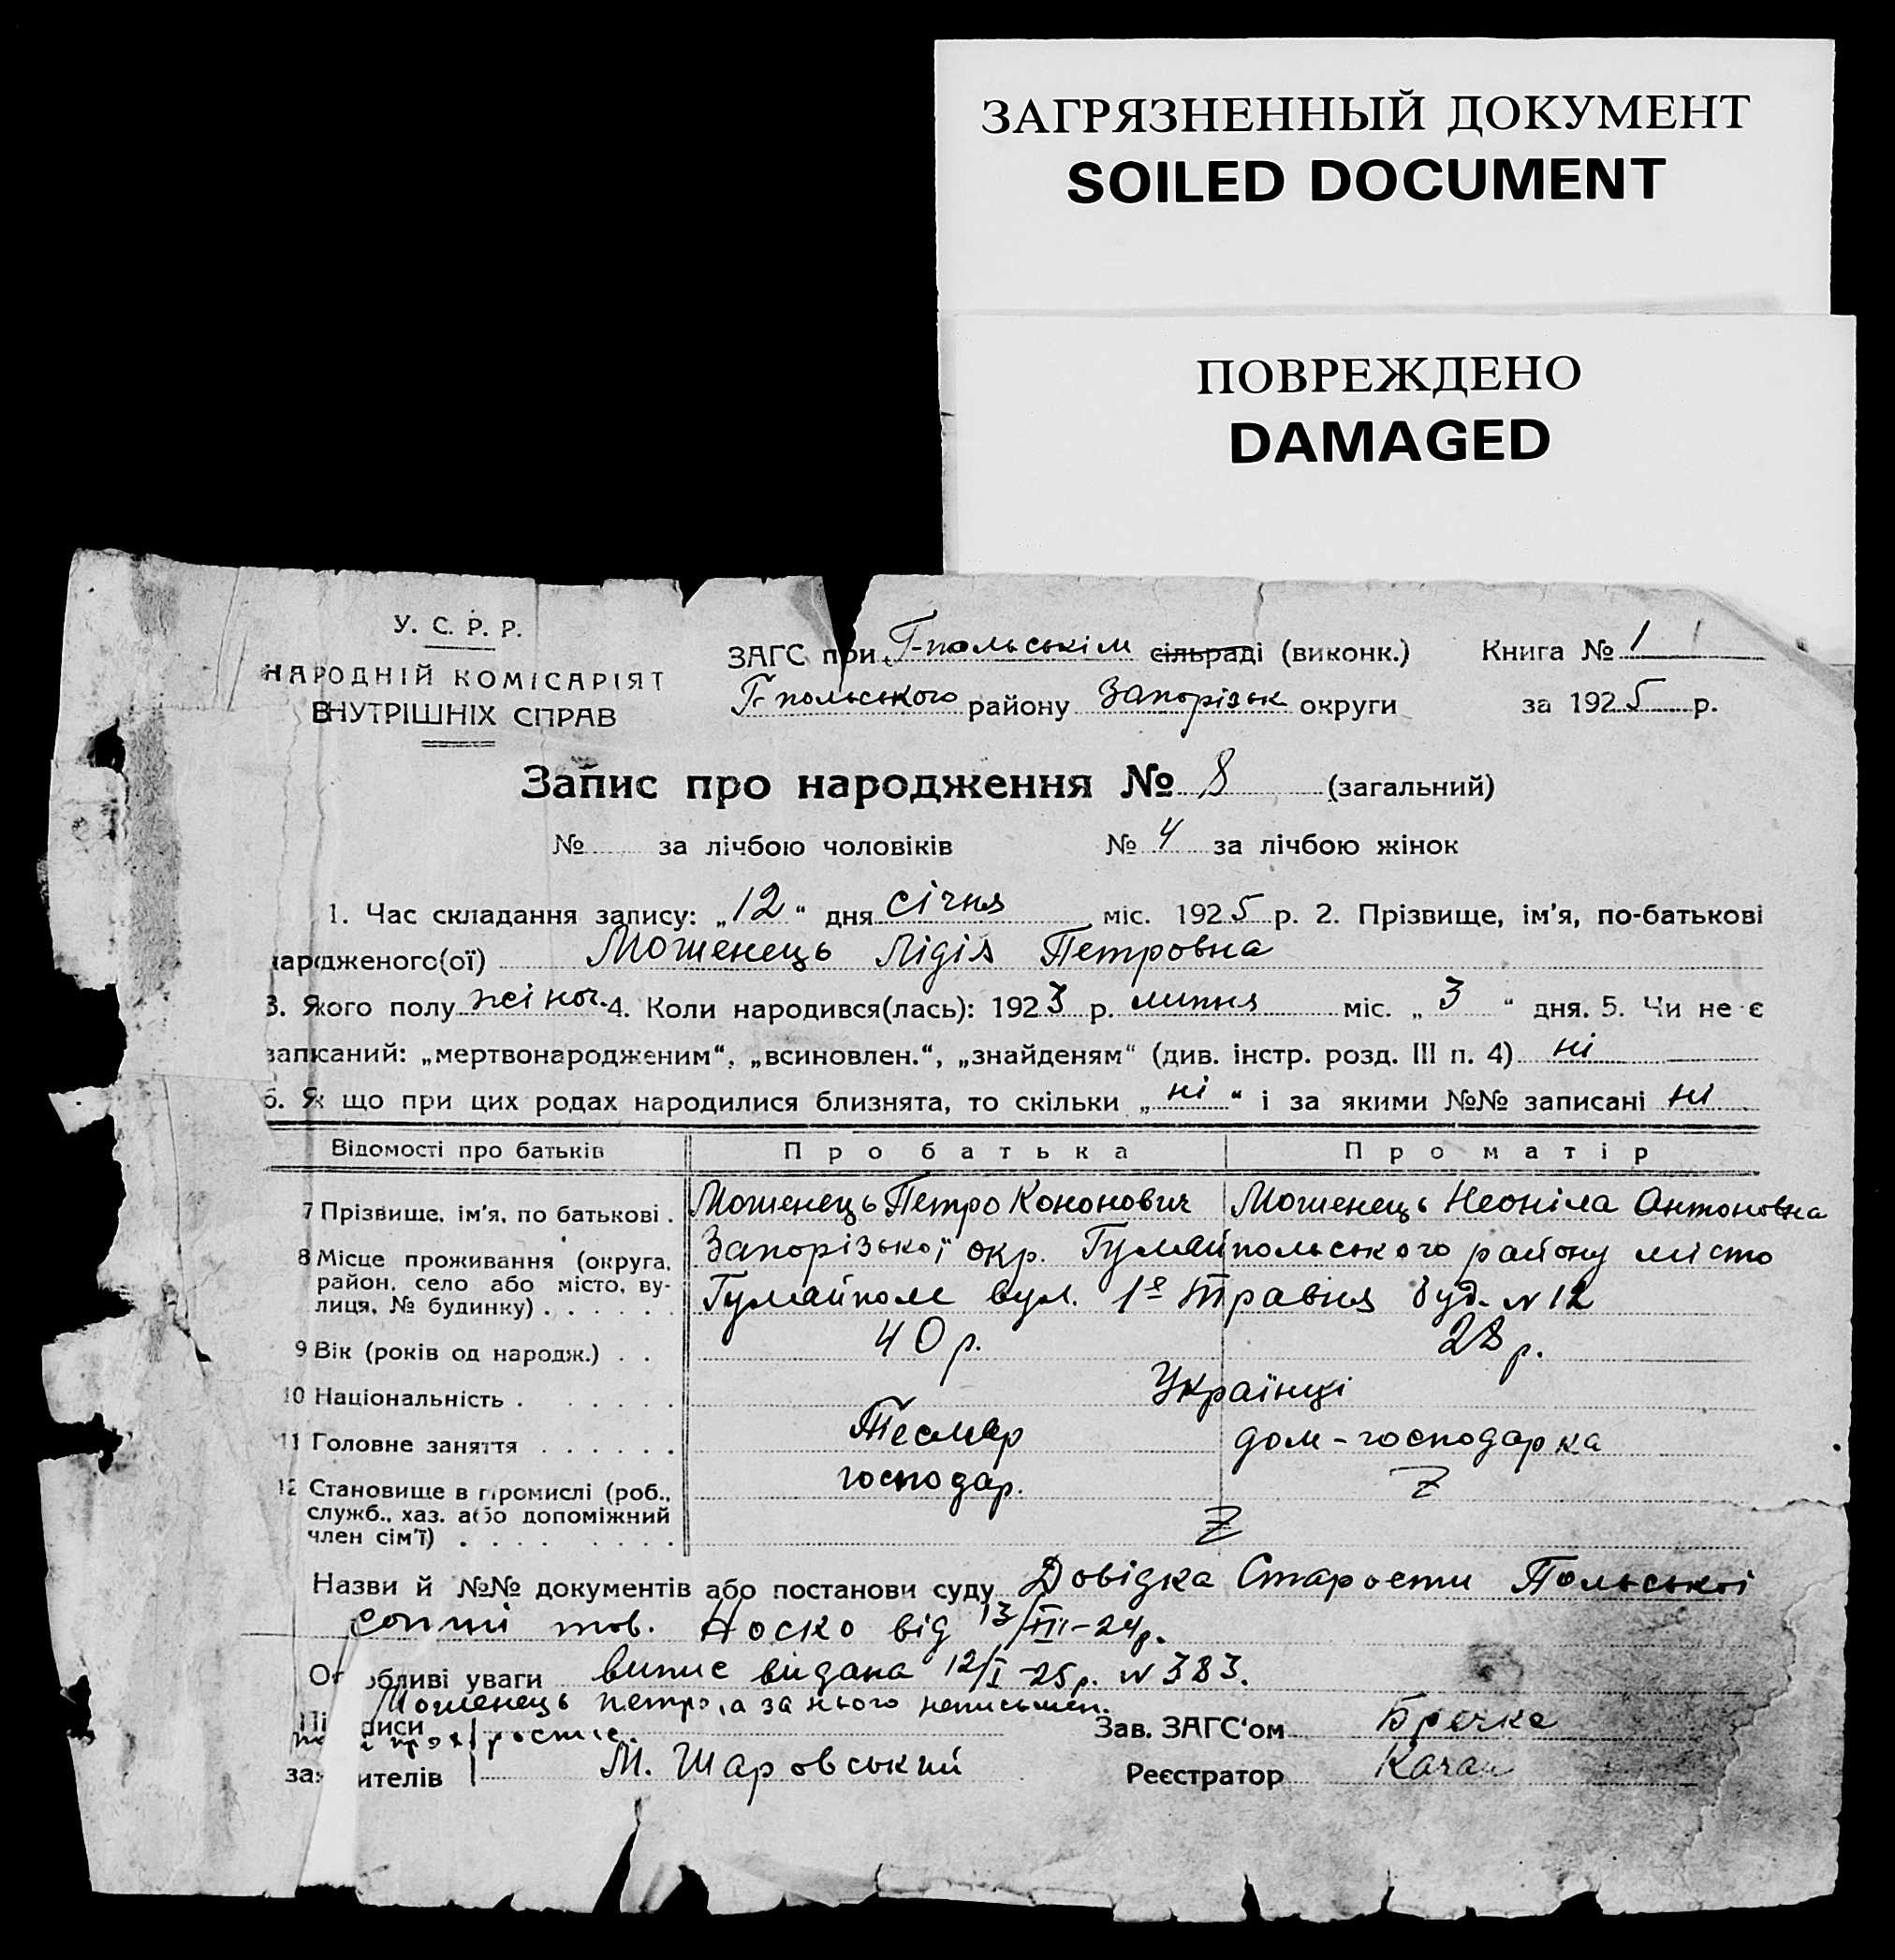 ЗАГРЯЗНЕННЫЙ ДОКУМЕНТ
SOILED DOCUMENT
ПОВРЕЖДЕНО
DAMAGED
У. С. Р. Р.
НАРОДНІЙ КОМІСАРІЯТ
ВНУТРІШНІХ СПРАВ
ЗАГС при Г-польськім сільраді (виконк.) Книга № 1
Г-польського району Запорізьк округи за 1925 р.
Запис про народження № 8 (загальний)
№ за лічбою чоловіків № 4 за лічбою жінок
1. Час складання запису: „12“ дня січня міс. 1925 р. 2. Прізвище, ім'я, по-батькові
народженого(ої) Мошенець Лідія Петровна
3. Якого полу жіноч. 4. Коли народився(лась): 1923 р. липня міс. „3“ дня. 5. Чи не є
записаний: „мертвонародженим“, „всиновлен.“, „знайденям“ (див. інстр. розд. III п. 4) ні
6. Як що при цих родах народилися близнята, то скільки „ні“ і за якими №№ записані ні
Відомості про батьків Про батька Про матір
7 Прізвище, ім'я, по батькові . Мошенець Петро Кононович Мошенець Неоніла Антоновна
8 Місце проживання (округа, Запорізької окр. Гуляйпольського району місто
район, село або місто, ву-
лиця, № будинку) . . . . . . Гуляйполе вул. 1го Травня буд. № 12
9 Вік (років од народж.) . . 40 р. 28 р.
10 Національність . . . . . . Українці
11 Головне заняття . . . . . . Тесляр дом-господарка
12 Становище в промислі (роб., господар. Z
служб., хаз. або допоміжний Z
член сім'ї) . . . . . . . .
Назви й №№ документів або постанови суду Довідка Старости Польської
сотні тов. Носко від 13/XII-24р.
Особливі уваги випис видана 12/I-25р. № 383.
Мошенець петро, а за нього неписьмен.
Підписи Зав. ЗАГС'ом Бречка
заявителів М. Шаровський Реєстратор Качан